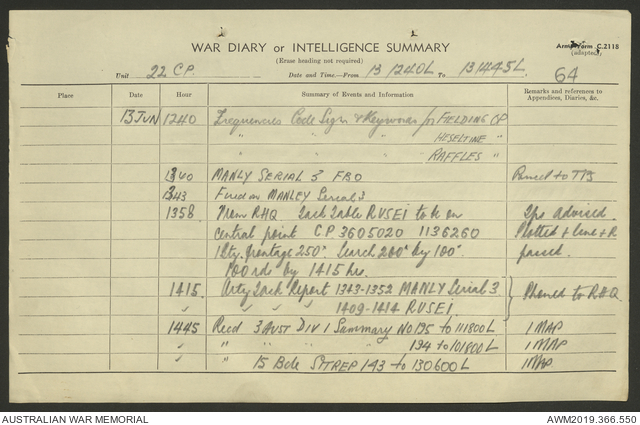 WAR DIARY or INTELLIGENCE SUMMARY
Army Form C.2118
(adapted)
(Erase heading not required)
Unit 22 CP. Date and Time.—From 13 1240L To 131445L.
64
Place Date Hour Summary of Events and Information Remarks and references to Appendices, Diaries, &c.
13 JUN 1240 Frequencies Code Signs & Keywords for FIELDING CP
" " " " HESELTINE "
" " " " RAFFLES "
1340 MANLY SERIAL 3 FBO
1343 Fired on MANLEY Serial 3
1358 From RHQ Task Table RUSEI to be on 2ps advised.
central point CP 3605020 1136260 Plotted & Line & R
1 Bty. frontage 250° Search 200° by 100° passed.
100 rds by 1415 hrs.
1415 Arty Task Report 1343-1352 MANLY Serial 3 Phoned to RHQ.
" " " 1409-1414 RUSEI
1445 Recd 3 AUST DIV 1 Summary No 195 to 111800L 1 MAP
" " " 194 to 101800L 1 MAP
" 15 Bde SITREP 143 to 130600L 1 MAP
AUSTRALIAN WAR MEMORIAL AWM2019.366.550